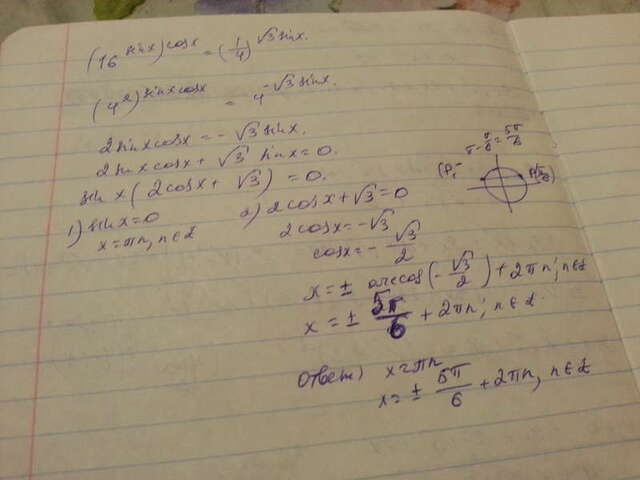 (16^sinx)^cosx = (1/4)^√3 sinx.
(4^2)^sinxcosx = 4^-√3 sinx.
2sinxcosx = -√3 sinx.
2sinxcosx + √3 sinx = 0.
sin x(2cosx + √3) = 0.
1) sinx=0
x=πn, n∈Z
2) 2cosx+√3=0
2cosx=-√3
cosx=-√3/2
x=± arccos(-√3/2)+2πn; n∈Z
x=± 5π/6 +2πn; n∈Z.
π-π/6=5π/6
Ответ) x=πn
x=± 5π/6 +2πn, n∈Z